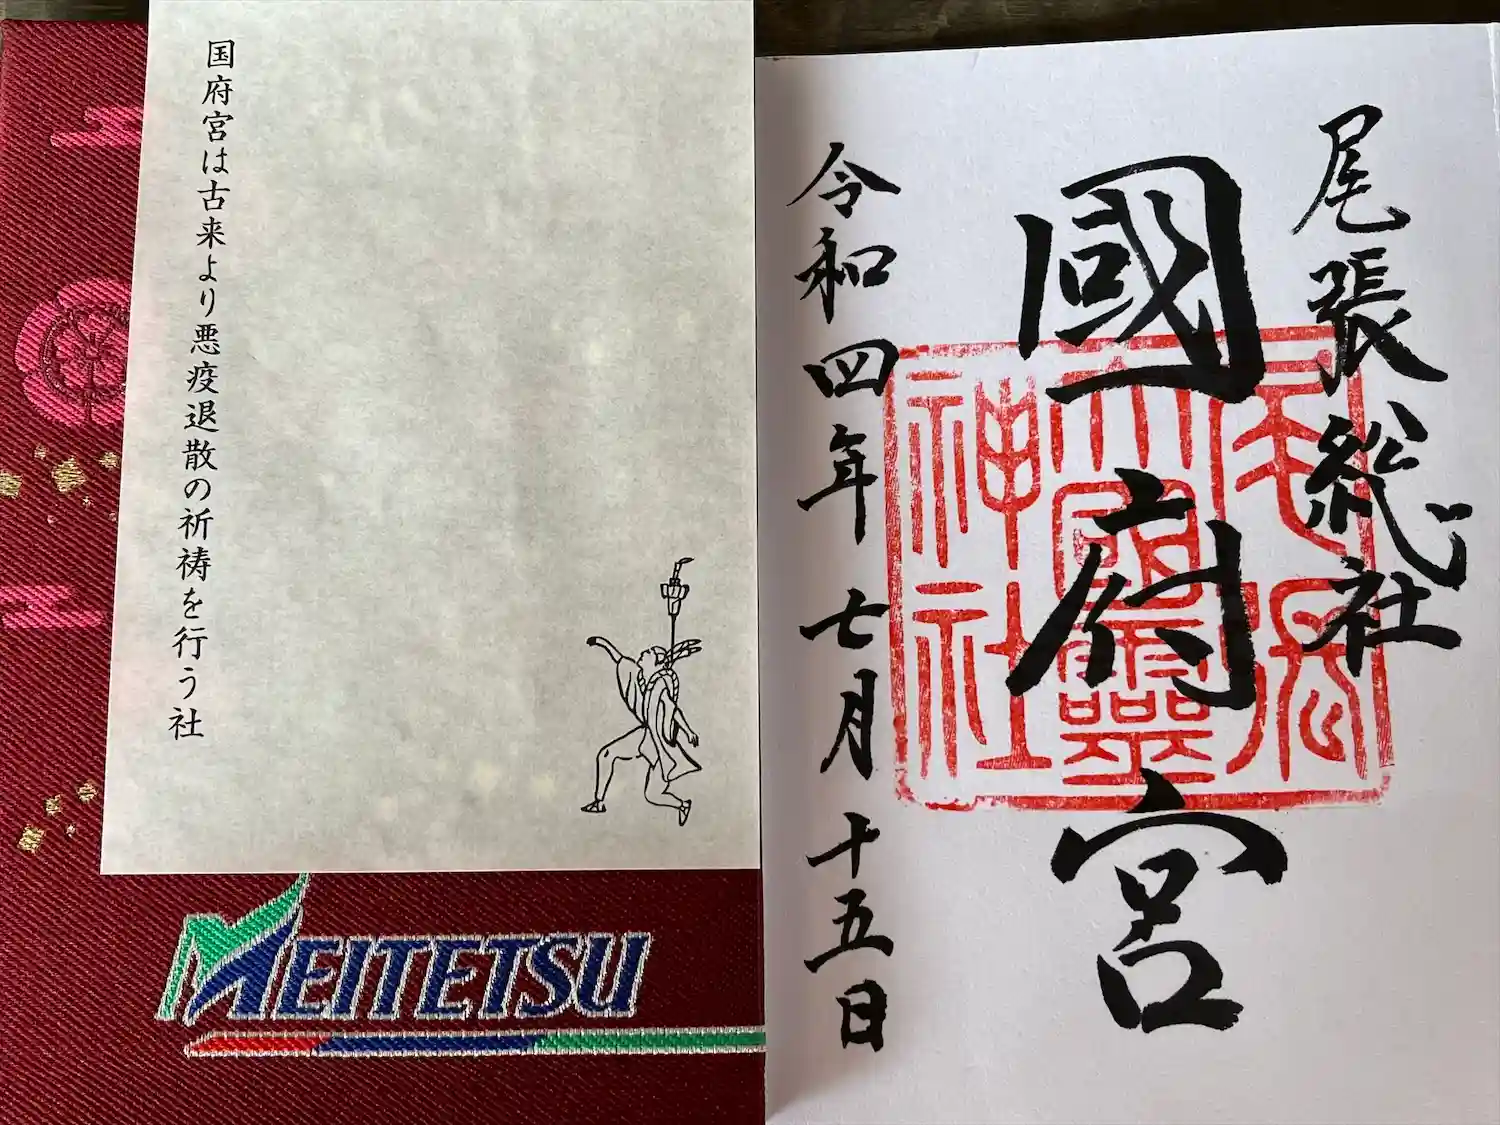 尾張総社
國府宮
令和四年七月十五日
尾張
大國霊
神社
国府宮は古来より悪疫退散の祈祷を行う社
MEITETSU